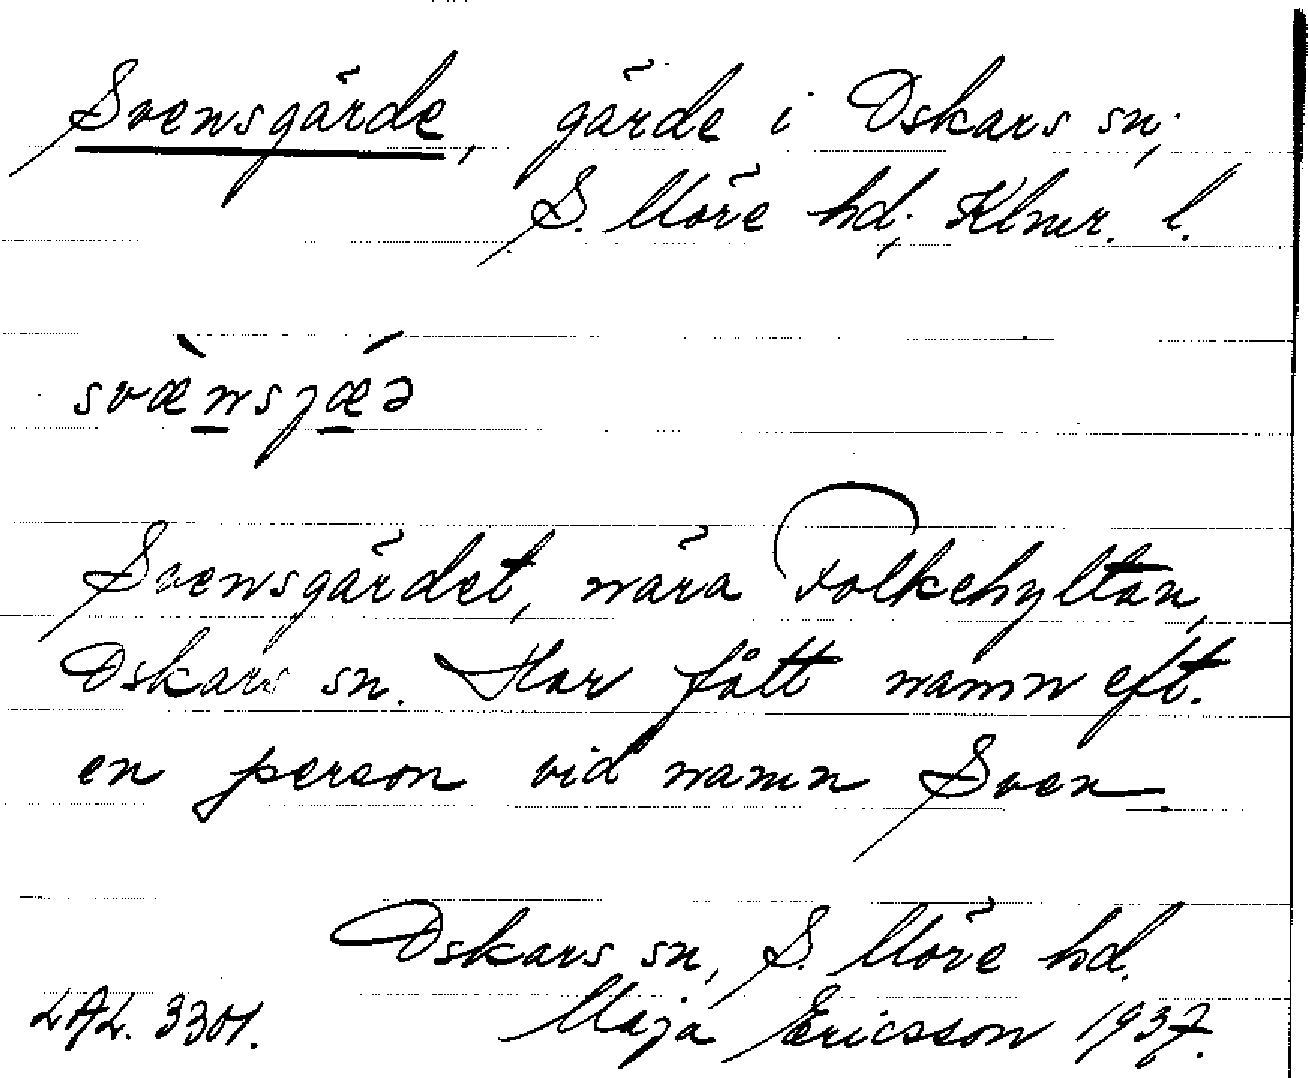 Svensgärde, gärde i Oskars sn,
S. Möre hd, Klmr. l.
svæ̀nsjǽə
Svensgärdet, nära Folkehyltan,
Oskars sn. Har fått namn eft.
en person vid namn Sven.
Oskars sn, S. Möre hd.
LAL. 3301. Maja Ericsson 1937.